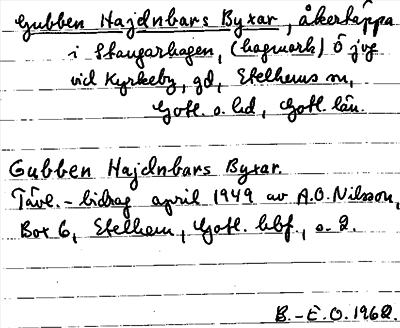 Gubben Hajdnbars Byxar, åkerkäppa
i Stangarhagen, (hagmark) Ö jvg
vid Kyrkeby, gd, Etelhems sn,
Gotl. s. hd, Gotl. län.
Gubben Hajdnbars Byxar.
Tävl.-bidrag april 1949 av A.O. Nilsson,
Box 6, Etelhem, Gotl. hbf., s. 2.
B.-E.O. 1962.